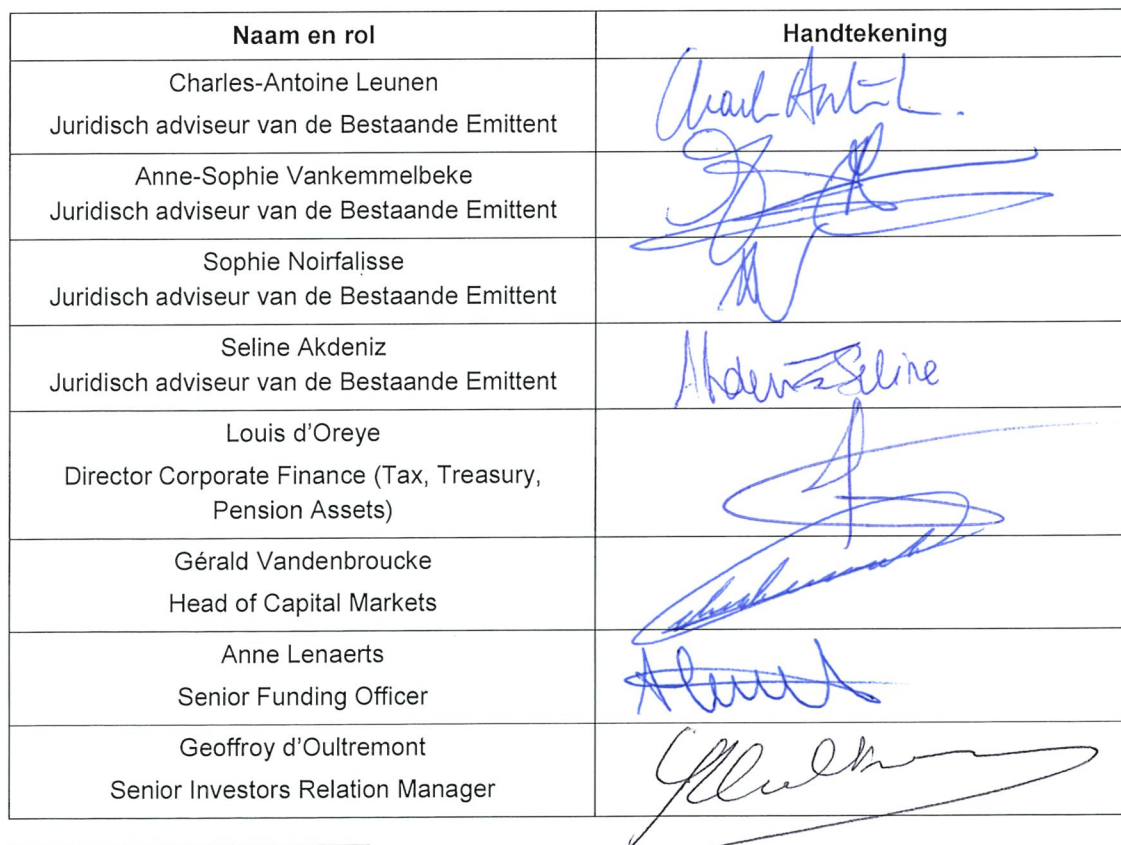 Naam en rol
Handtekening
Charles-Antoine Leunen
Juridisch adviseur van de Bestaande Emittent
Anne-Sophie Vankemmelbeke
Juridisch adviseur van de Bestaande Emittent
Sophie Noirfalisse
Juridisch adviseur van de Bestaande Emittent
Seline Akdeniz
Juridisch adviseur van de Bestaande Emittent
Akdeniz Seline
Louis d’Oreye
Director Corporate Finance (Tax, Treasury,
Pension Assets)
Gérald Vandenbroucke
Head of Capital Markets
Anne Lenaerts
Senior Funding Officer
Geoffroy d’Oultremont
Senior Investors Relation Manager